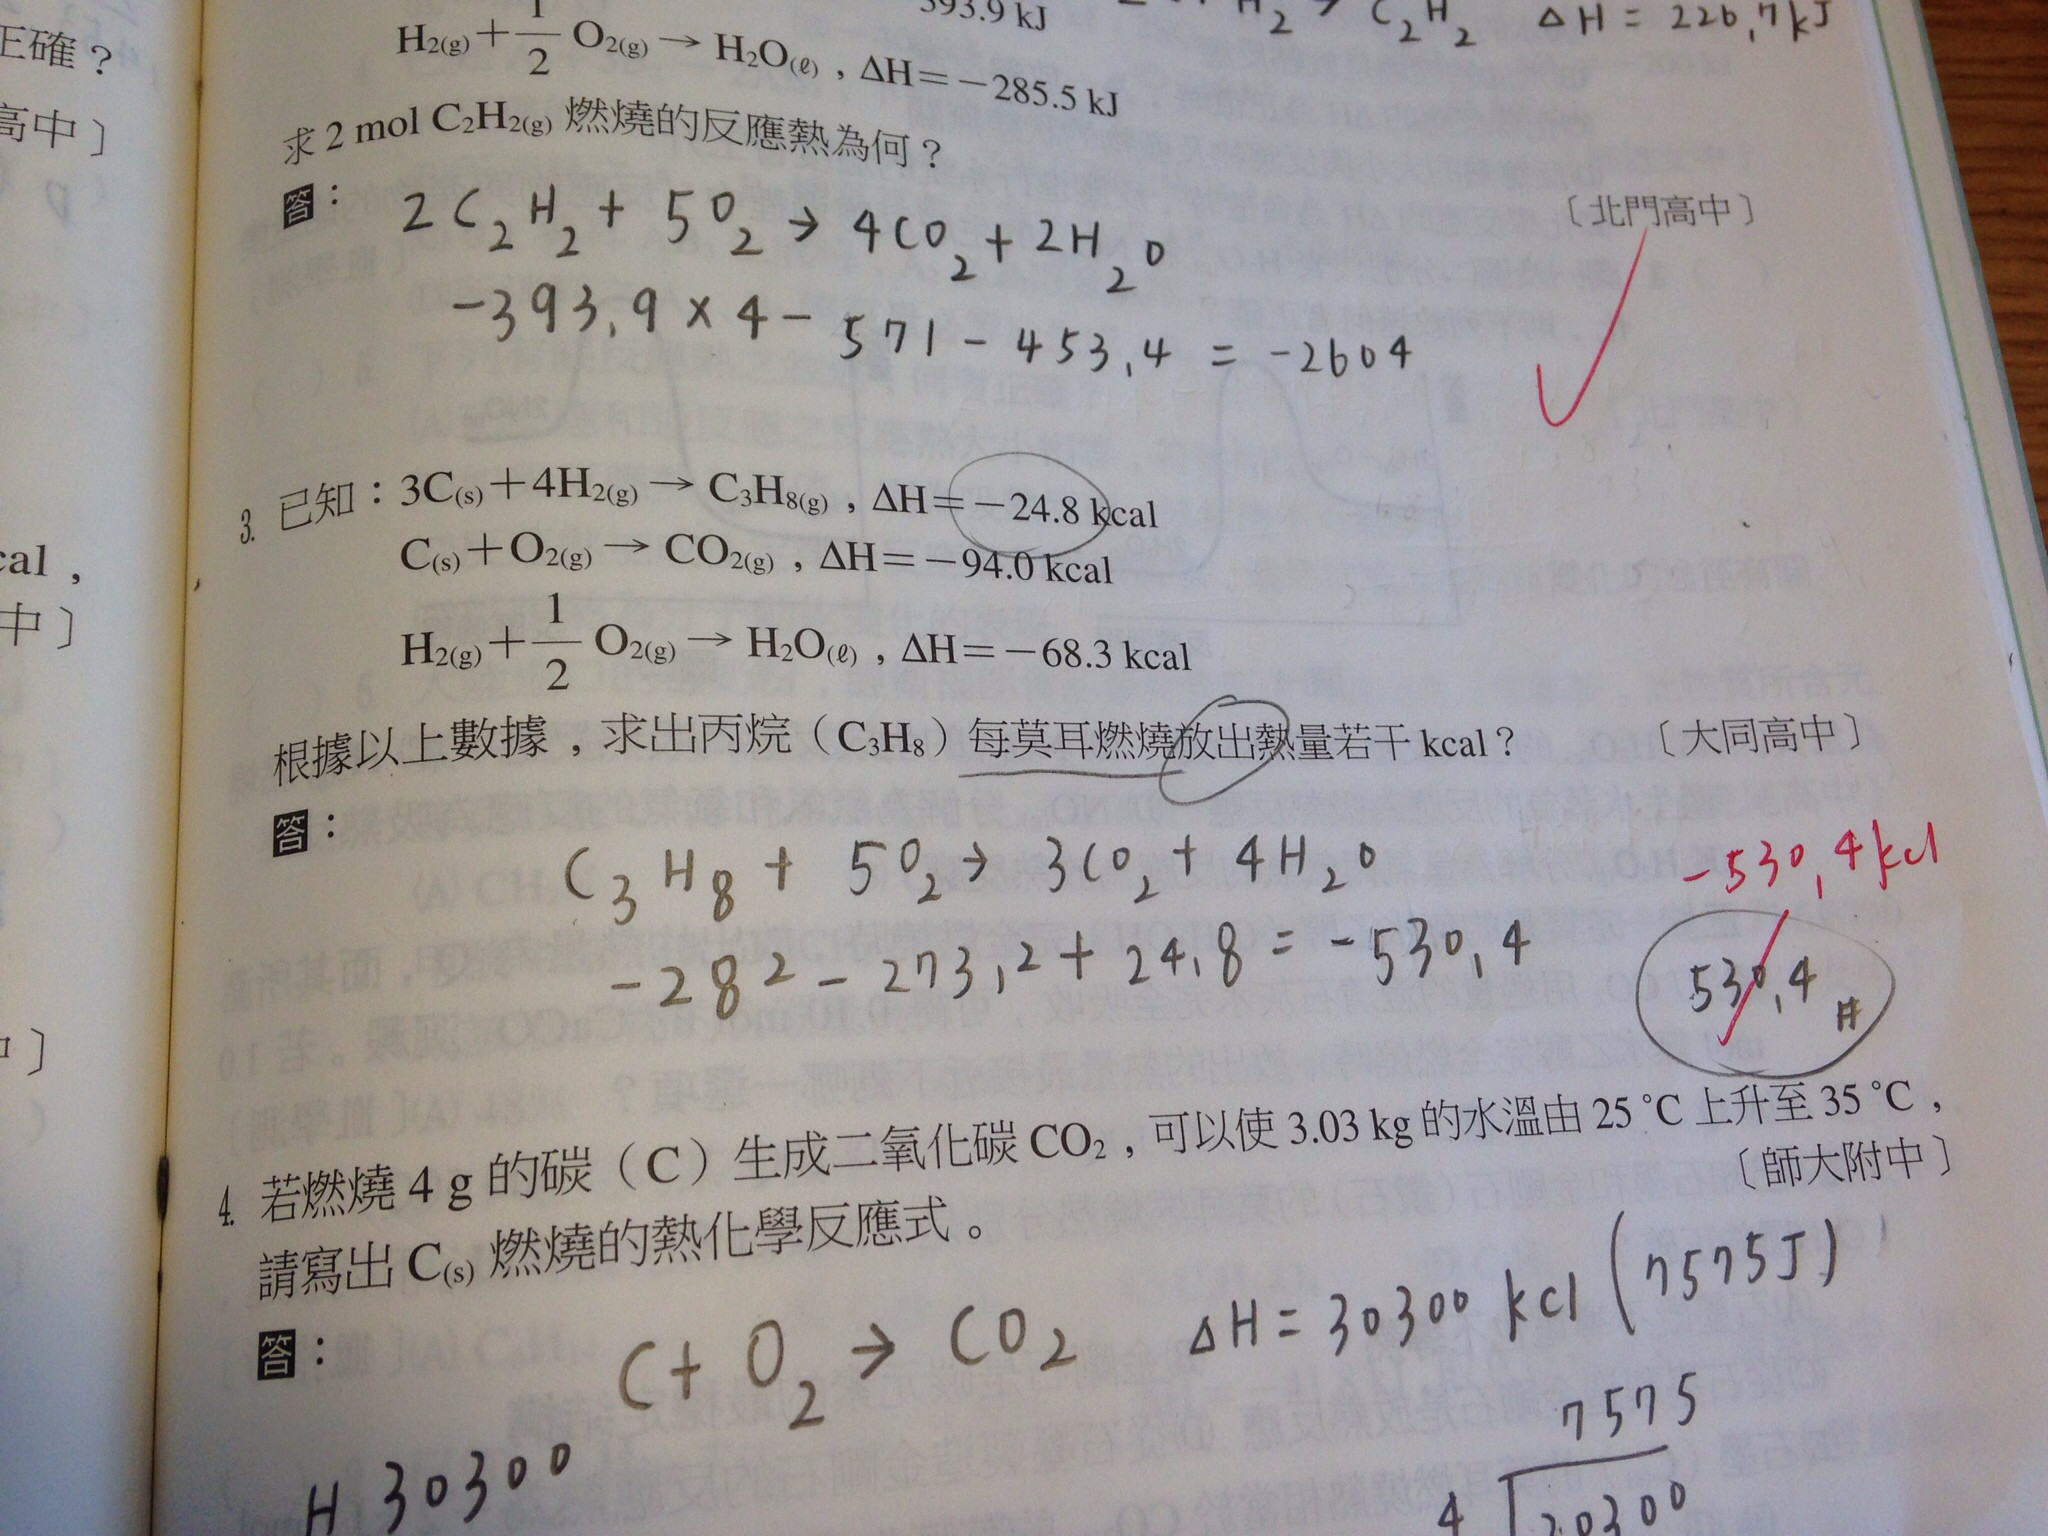 正確？
高中〕
cal，
中〕
393.9 kJ
C₂H₂ ΔH = 226.7kJ
H₂(g)＋1/2 O₂(g) → H₂O(ℓ)，ΔH＝－285.5 kJ
求 2 mol C₂H₂(g) 燃燒的反應熱為何？
〔北門高中〕
答：
2C₂H₂ + 5O₂ → 4CO₂ + 2H₂O
-393.9 × 4 - 571 - 453.4 = -2604
3. 已知：3C(s)＋4H₂(g) → C₃H₈(g)，ΔH＝－24.8 kcal
C(s)＋O₂(g) → CO₂(g)，ΔH＝－94.0 kcal
H₂(g)＋1/2 O₂(g) → H₂O(ℓ)，ΔH＝－68.3 kcal
根據以上數據，求出丙烷（C₃H₈）每莫耳燃燒放出熱量若干 kcal？ 〔大同高中〕
答：
C₃H₈ + 5O₂ → 3CO₂ + 4H₂O
-530.4 kcl
-282 - 273.2 + 24.8 = -530.4
530.4 #
4. 若燃燒 4 g 的碳（C）生成二氧化碳 CO₂，可以使 3.03 kg 的水溫由 25 ℃ 上升至 35 ℃，
請寫出 C(s) 燃燒的熱化學反應式。 〔師大附中〕
答：
C + O₂ → CO₂ ΔH = 30300 kcl (7575J)
7575
H 30300
4 30300